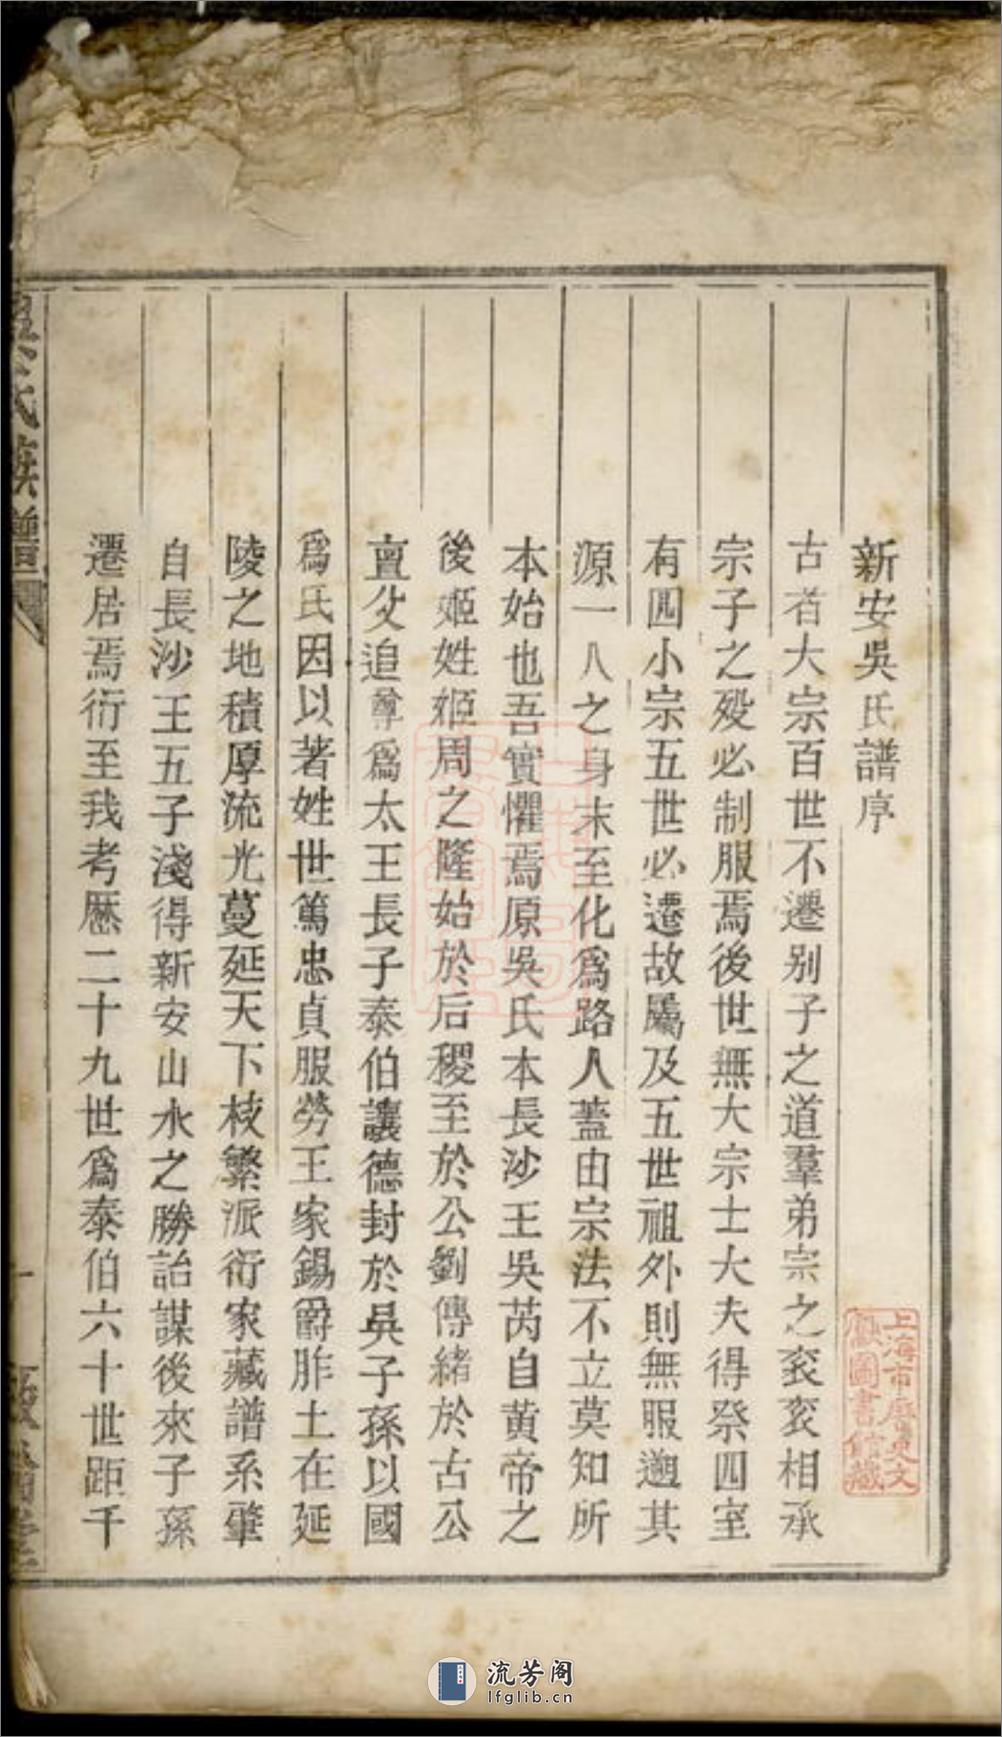 新安吳氏譜序
古者大宗百世不遷别子之道羣弟宗之衮衮相承
宗子之殁必制服焉後世無大宗士大夫得祭四室
有四小宗五世必遷故屬及五世祖外則無服遡其
源一人之身末至化爲路人蓋由宗法不立莫知所
本始也吾實懼焉原吳氏本長沙王吳芮自黄帝之
後姬姓姬周之隆始於后稷至於公劉傳緒於古公
亶父追尊爲太王長子泰伯讓德封於吳子孫以國
爲氏因以著姓世篤忠貞服勞王家錫爵胙土在延
陵之地積厚流光蔓延天下枝繁派衍家藏譜系肇
自長沙王五子淺得新安山水之勝詒謀後來子孫
遷居焉衍至我考厯二十九世爲泰伯六十世距千
吳氏族譜
一
上海市歷史文
獻圖書館藏
流芳阁
lfglib.cn